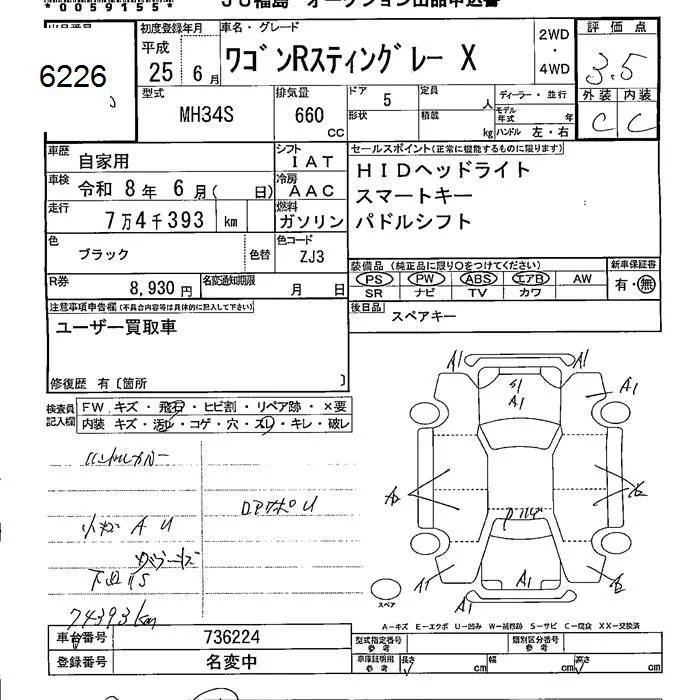 *0059155*
JU福島 オークション出品申込書
出品番号
6226
初度登録年月
平成
25 6月
車名・グレード
ワゴンRスティングレー X
2WD
・
4WD
評価点
3.5
型式
MH34S
排気量
660
CC
ドア 5
形状
定員 人
積載 kg
ディーラー・並行
モデル年式 年
ハンドル 左・右
外装 内装
C C
車歴 自家用
シフト IAT
車検 令和 8年 6月( 日)
冷房 AAC
走行 7万4千393 km
燃料 ガソリン
セールスポイント(正常に機能するものに限ります)
HIDヘッドライト
スマートキー
パドルシフト
色 ブラック 色替
色コード ZJ3
R券 8,930円
名変通知期限 月 日
装備品 (純正品に限り○をつけてください)
PS PW ABS エアB AW
SR ナビ TV カワ
新車保証書
有・無
後日品 スペアキー
注意事項申告欄(不具合内容等は具体的に記入して下さい)
ユーザー買取車
修復歴 有〔箇所 〕
検査員記入欄
FW キズ・飛石・ヒビ割・リペア跡・×要
内装 キズ・汚れ・コゲ・穴・スレ・キレ・破レ
ハンドルカバー
小キズ A U
下回りS
74393km
A1 A1
S1
A1
A1
A1 A1
A1
スペア
A-キズ E-エクボ U-凹み W-補修跡 S-サビ C-腐食 XX-交換済
車台番号 736224
登録番号 名変中
型式指定番号 参考
類別区分番号 参考
車庫証明用 参考
長さ cm 幅 cm 高さ cm